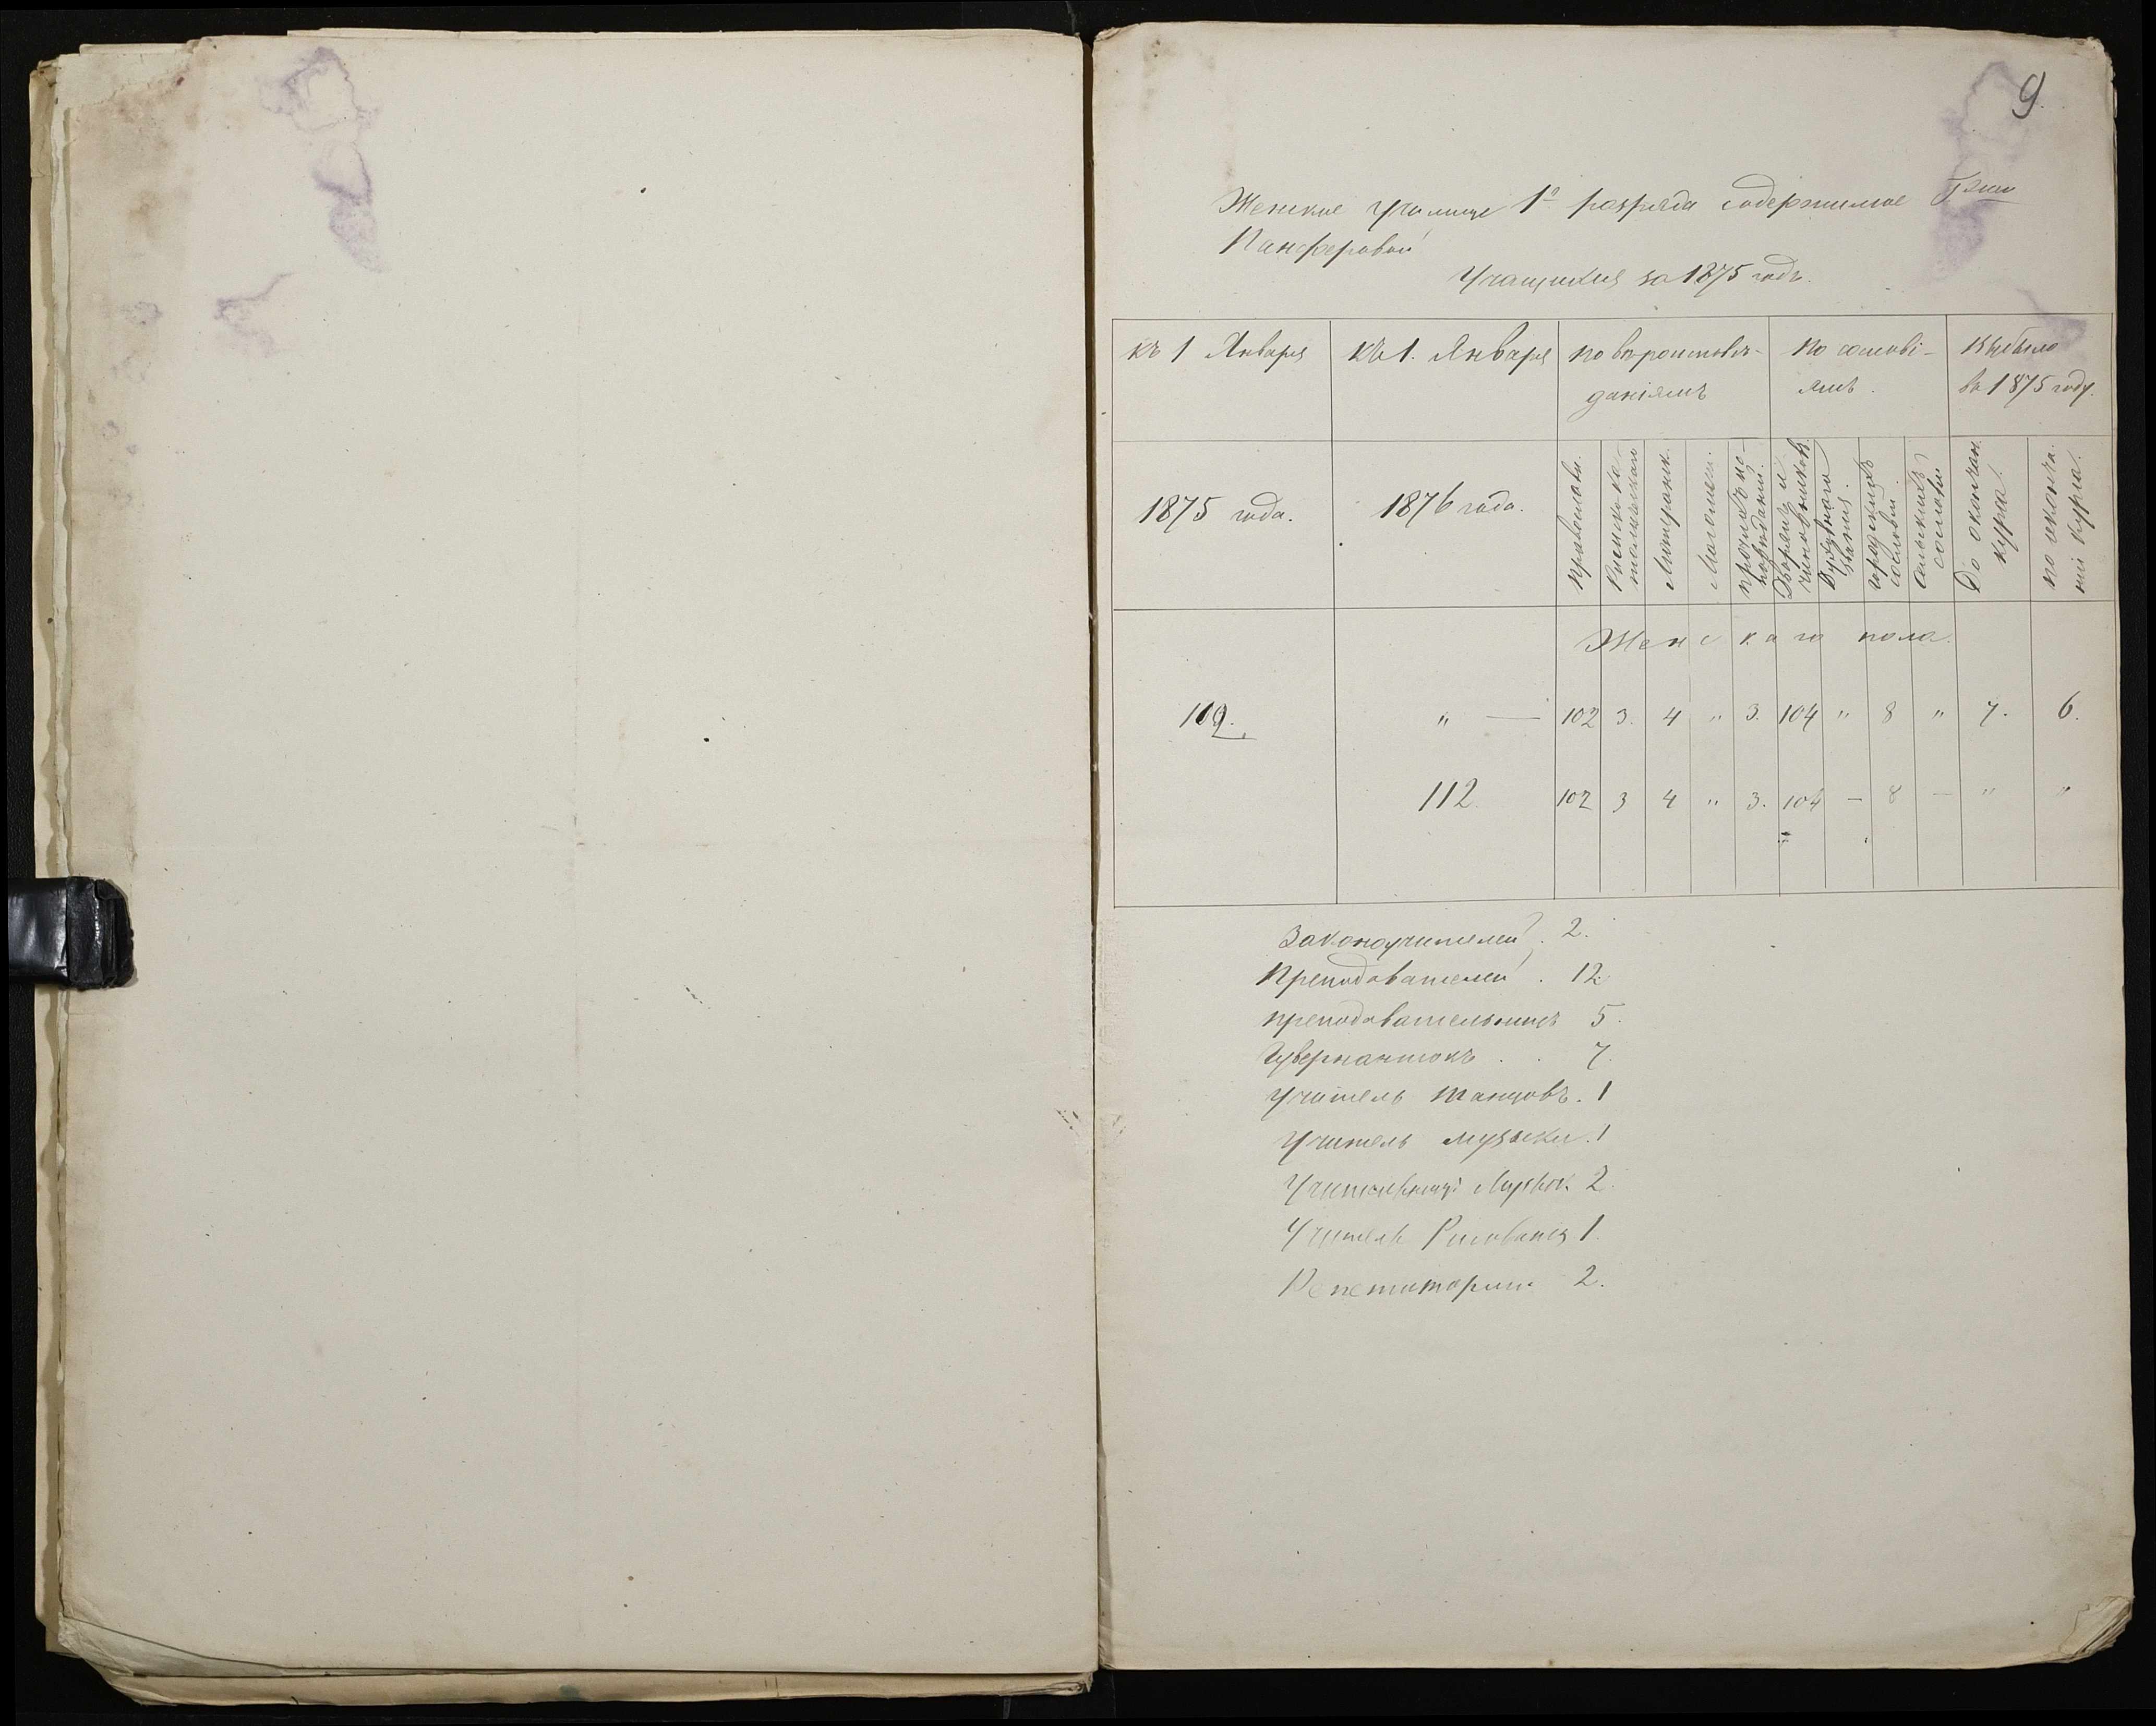 9.
Женское училище 1го разряда содержимое Гжею
Панферовой
Учащихся за 1875 годъ.
къ 1 Января
1875 года.
къ 1. Января
1876 года.
по вѣроисповѣ-
даніямъ
По сословi-
ямъ.
Выбыло
въ 1875 году.
православн.
Римско-ка-
толическаго
Лютеранск.
Магомет.
прочихъ ис-
повѣданій.
Дворянъ и
чиновниковъ
Духовнаго
званія.
городскихъ
сословій.
сельскихъ
сословій
До окончан.
курса.
по оконча.
ніи курса.
Женскаго пола.
109. " — 102 3. 4 " 3. 104 " 8 " 7. 6.
112. 102 3 4 " 3. 104 — 8 — " "
Законоучителей. 2.
Преподавателей. 12
преподавательницъ 5.
Гувернантокъ . . 7.
Учитель танцовъ. 1
Учитель музыки. 1
Учительницъ Музык. 2.
Учитель Рисованія 1.
Репетиторши 2.